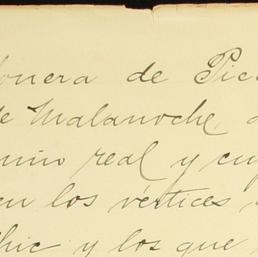 onera de Pic
de Malanoche,
mino real y cuy
en los vértices
hic y los que